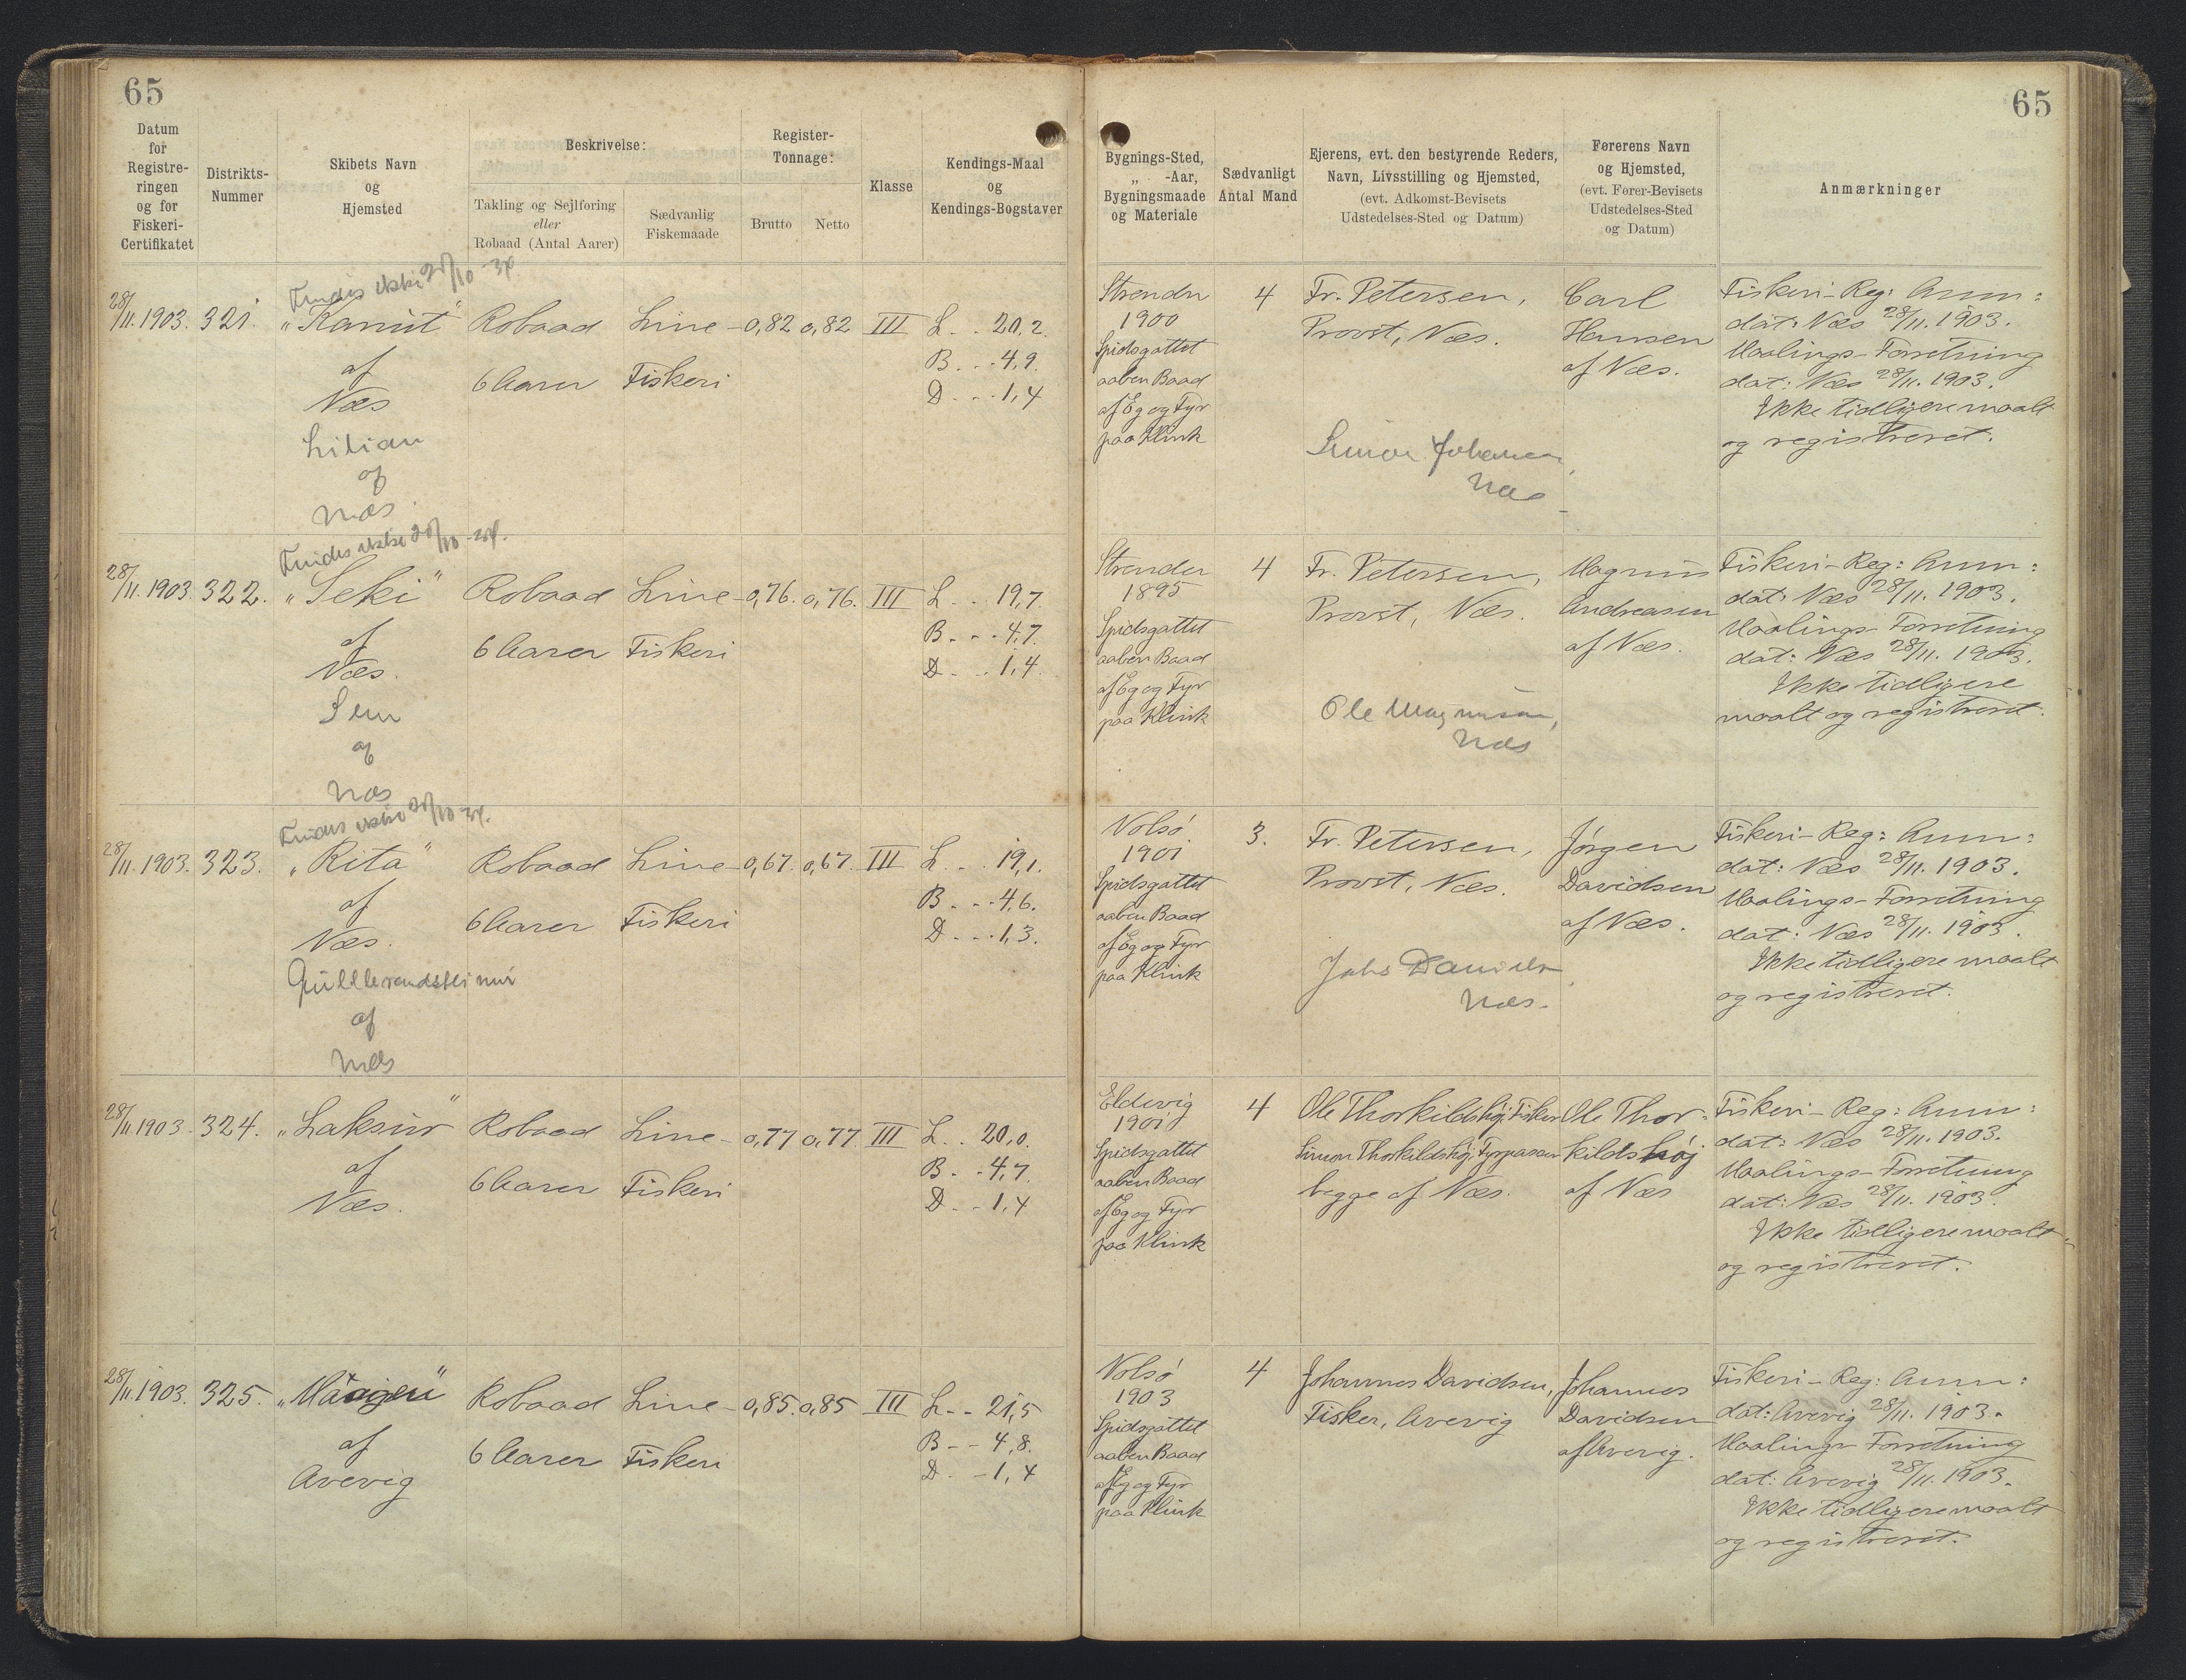 65
65
Datum
for
Registre-
ringen
og for
Fiskeri-
Certifikatet
Distrikts-
Nummer
Skibets Navn
og
Hjemsted
Beskrivelse:
Takling og Sejlføring
eller
Robaad (Antal Aarer)
Sædvanlig
Fiskemaade
Register-
Tonnage:
Brutto
Netto
Klasse
Kendings-Maal
og
Kendings-Bogstaver
Bygnings-Sted,
„ -Aar,
Bygningsmaade
og Materiale
Sædvanligt
Antal Mand
Ejerens, evt. den bestyrende Reders,
Navn, Livsstilling og Hjemsted,
(evt. Adkomst-Bevisets
Udstedelses-Sted og Datum)
Førerens Navn
og Hjemsted,
(evt. Fører-Bevisets
Udstedelses-Sted
og Datum)
Anmærkninger
Findes ikke
28/11. 1903. 321.
„Kanut"
af
Næs
Lilian
af
Næs
Robaad
6 Aarer
Line-
Fiskeri
0,82 0,82 III
L. . 20,2.
B. . . 4,9.
D. . . 1,4
Strendr
1900
Spidsgattet
aaben Baad
af Eg og Fyr
paa Klink
4
Fr. Petersen,
Provst, Næs.
Simon Johansen,
Næs
Carl
Hansen
af Næs.
Fiskeri-Reg: Anm:
dat: Næs 28/11. 1903.
Maalings-Forretning
dat: Næs 28/11. 1903.
Ikke tidligere maalt
og registreret.
Findes ikke
28/11. 1903. 322.
„Seki"
af
Næs.
Sem
af
Næs
Robaad
6 Aarer
Line-
Fiskeri
0,76. 0,76. III
L. . . 19,7.
B. . . 4,7.
D. . . 1,4.
Strender
1895
Spidsgattet
aaben Baad
af Eg og Fyr
paa Klink
4
Fr. Petersen,
Provst, Næs.
Ole Magnusen,
Næs
Magnus
Andreasen
af Næs.
Fiskeri-Reg: Anm:
dat: Næs 28/11. 1903.
Maalings-Forretning
dat: Næs 28/11. 1903.
Ikke tidligere
maalt og registreret.
Findes ikke
28/11. 1903. 323.
„Rita"
af
Næs.
af
Næs
Robaad
6 Aarer
Line-
Fiskeri
0,67. 0,67. III
L. . . 19,1.
B. . . 4,6.
D. . . 1,3.
Nolsö
1901
Spidsgattet
aaben Baad
af Eg og Fyr
paa Klink
3.
Fr. Petersen,
Provst, Næs.
Næs.
Jörgen
Davidsen
af Næs.
Fiskeri-Reg: Anm:
dat: Næs 28/11. 1903.
Maalings-Forretning
dat: Næs 28/11. 1903.
Ikke tidligere maalt
og registreret.
28/11 1903. 324.
„Laksur"
af
Næs.
Robaad
6 Aarer
Line-
Fiskeri
0,77 0,77. III
L. . 20,0.
B. . 4,7.
D. . 1,4
Eldevig
1901
Spidsgattet
aaben Baad
af Eg og Fyr
paa Klink
4
Ole Thorkildshöj, Fisker
Simon Thorkildshöj, Fyrpasser
begge af Næs.
Ole Thor-
kildshöj
af Næs
Fiskeri-Reg: Anm:
dat: Næs 28/11. 1903.
Maalings-Forretning
dat: Næs 28/11. 1903.
Ikke tidligere maalt
og registreret.
28/11. 1903. 325.
af
Avevig
Robaad
6 Aarer
Line-
Fiskeri
0,85. 0,85 III
L. - - 21,5
B - - 4,8.
D. - 1,4
Nolsö
1903
Spidsgattet
aaben Baad
af Eg og Fyr
paa Klink
4
Johannes Davidsen,
Fisker, Avevig
Johannes
Davidsen
af Avevig.
Fiskeri-Reg: Anm:
dat: Avevig 28/11. 1903.
Maalings-Forretning
dat: Avevig 28/11. 1903.
Ikke tidligere maalt
og registreret.